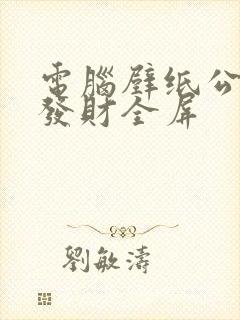 電腦壁纸公
發財全屏
劉敏濤